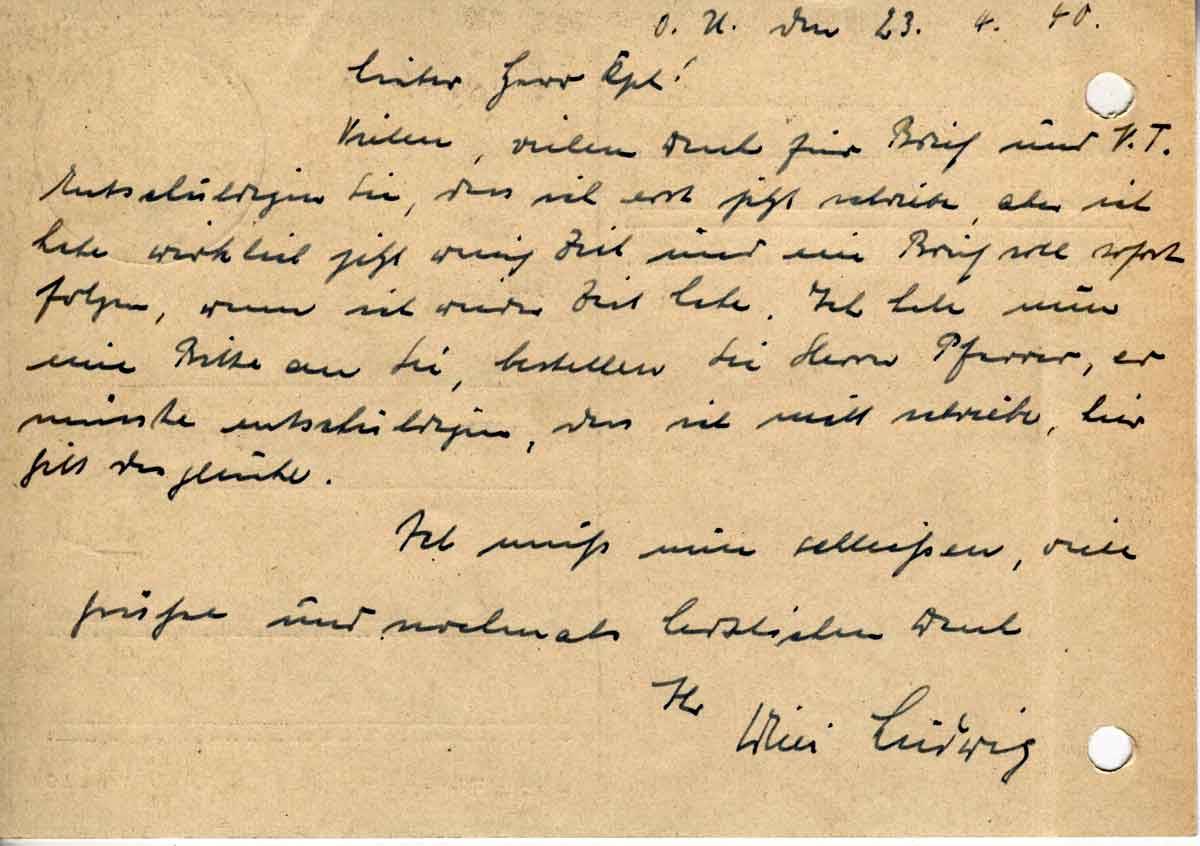 O. U. den 23. 4. 40.
Lieber Herr Kpl!
Vielen, vielen Dank für Brief und V. T.
Entschuldigen Sie, dass ich erst jetzt schreibe, aber ich
habe wirklich jetzt wenig Zeit und ein Brief soll sofort
folgen, wenn ich wieder Zeit habe. Ich habe nun
eine Bitte an Sie, bestellen Sie Herrn Pfarrer, er
müsste entschuldigen, dass ich nicht schreibe, hier
gilt das gleiche.
Ich muß nun schließen, viele
Grüße und nochmals herzlichen Dank
Ihr
Willi Ludwig